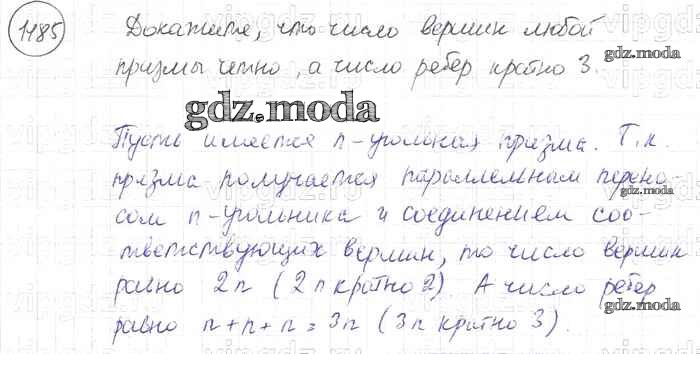 1185
Докажите, что число вершин любой
gdz.moda
призмы четно, а число ребер кратно 3.
gdz.moda
gdz.moda
Пусть имеется n-угольная призма. Т.к.
призма получается параллельным перено-
gdz.moda
сом n-угольника и соединением соо-
тветствующих вершин, то число вершин
равно 2n (2n кратно 2). А число ребер
gdz.moda
равно n+n+n=3n (3n кратно 3).